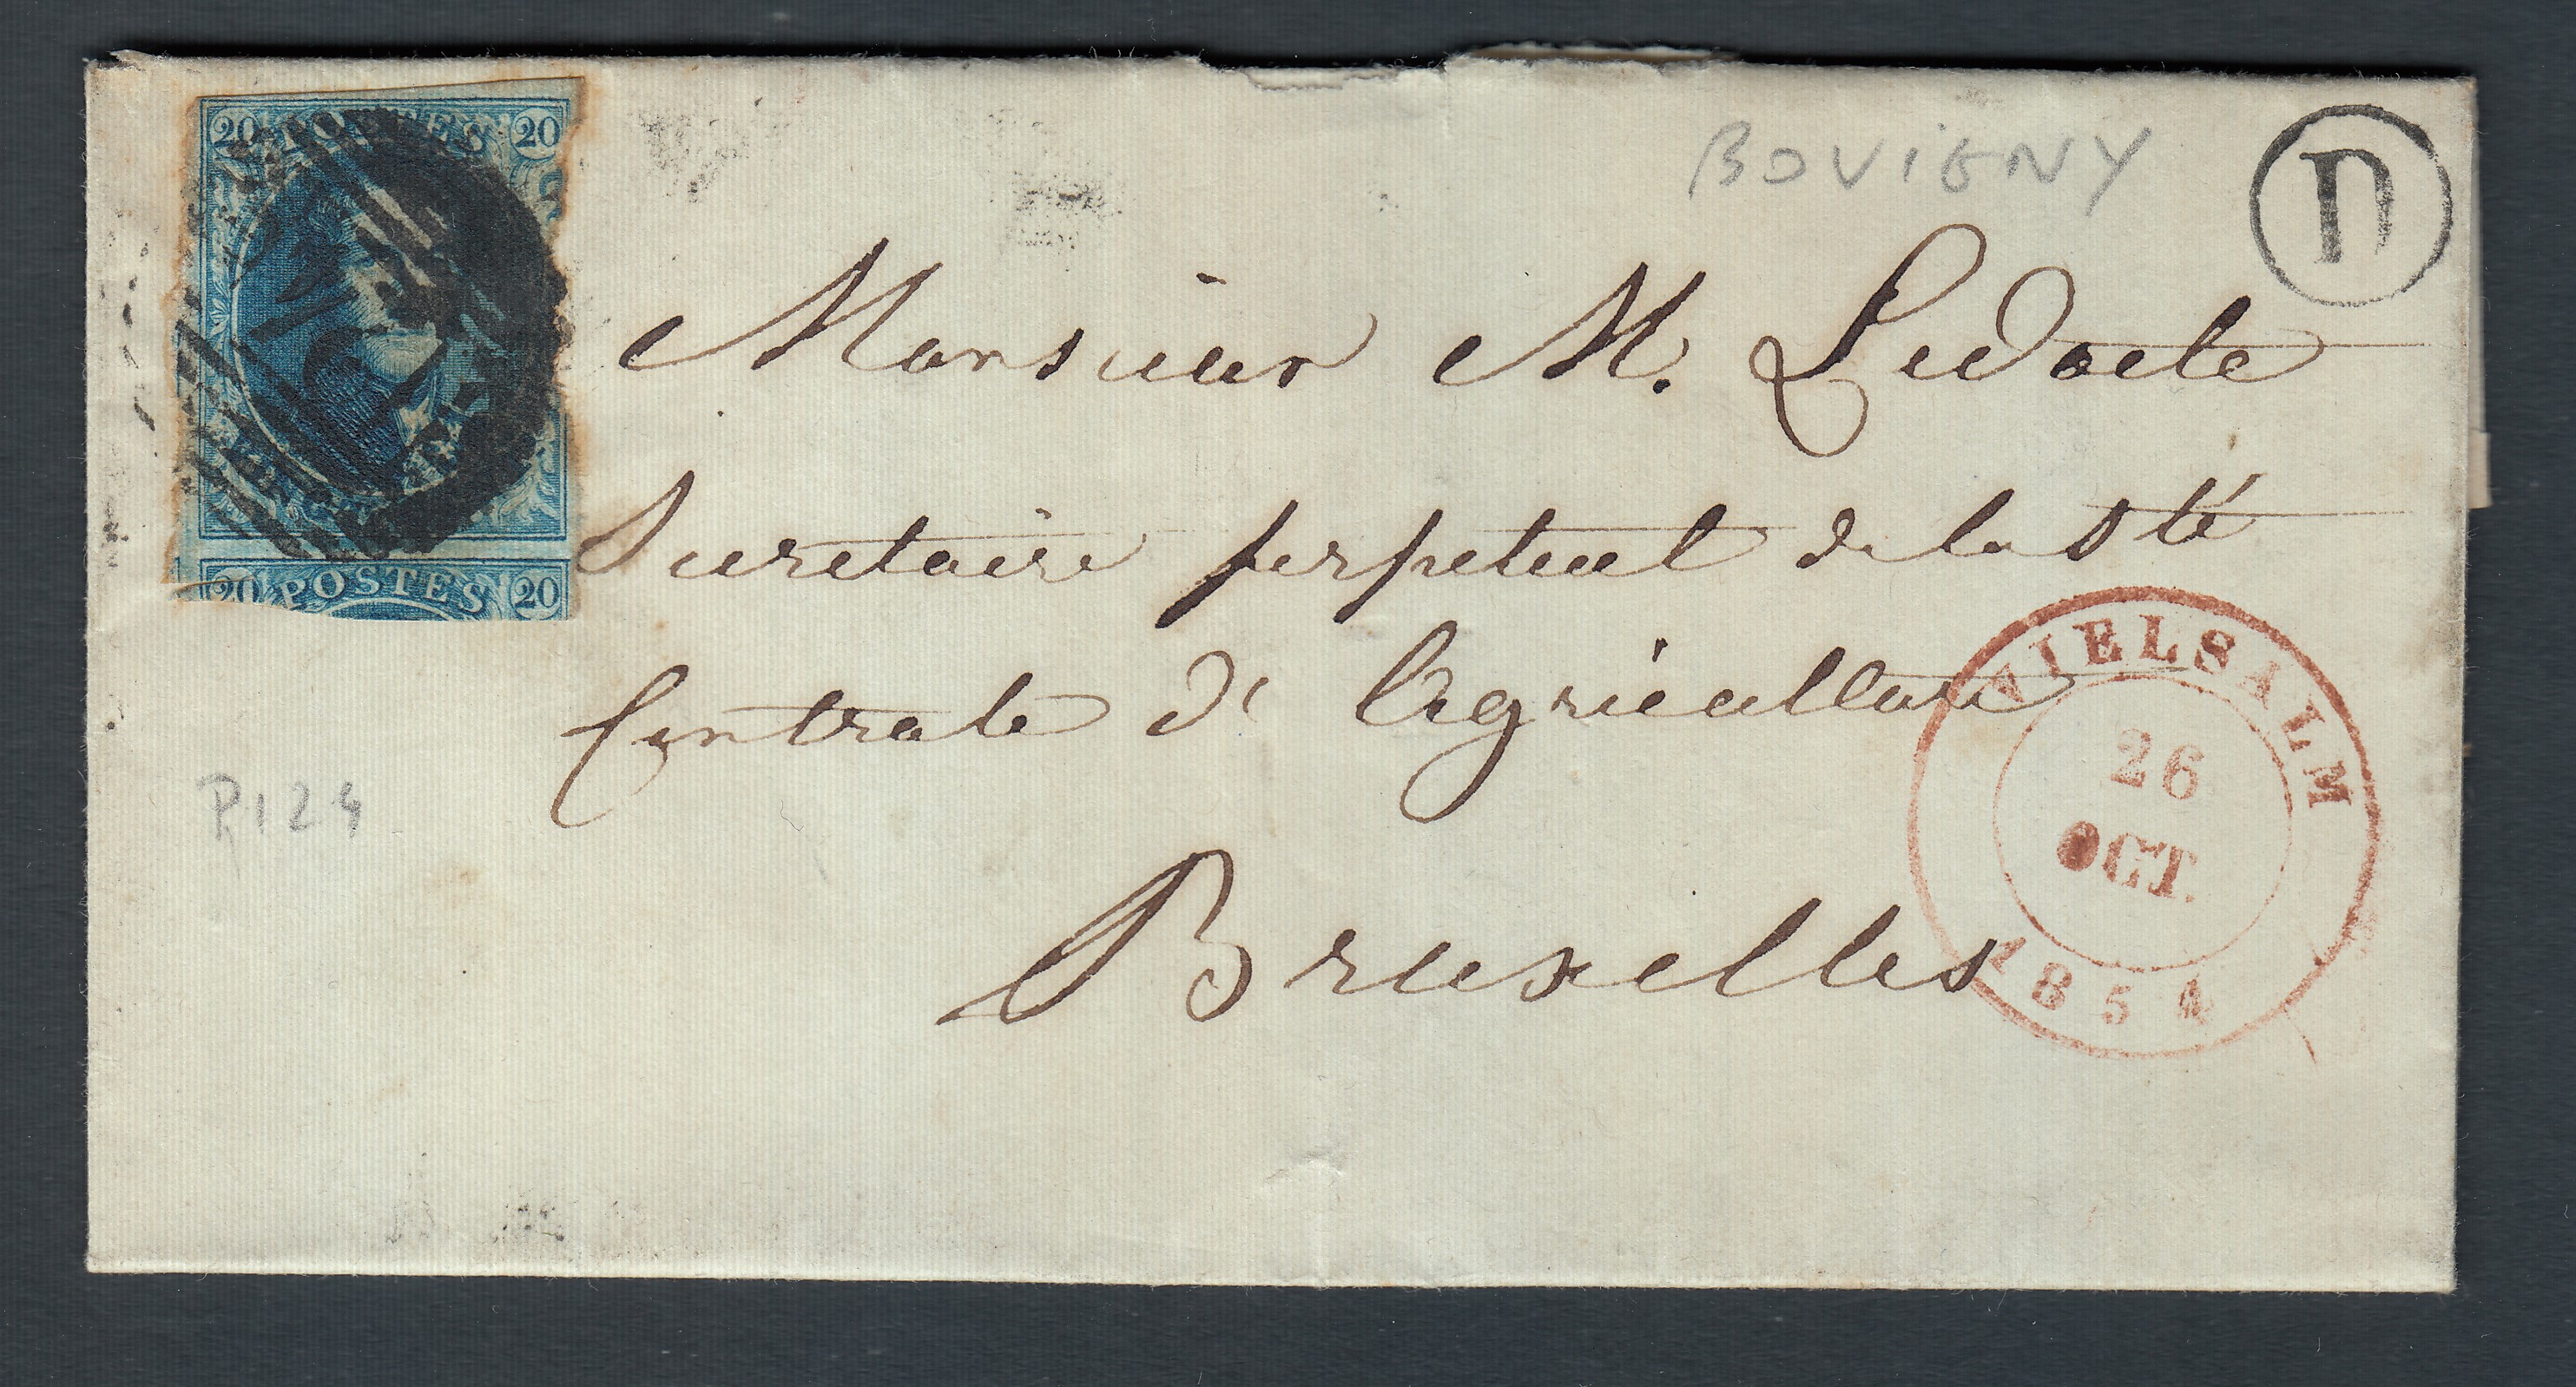 20 POSTES 20
20 POSTES 20
BOVIGNY
D
Monsieur M. Ledocte
Secretaire perpetuel de la Sté
Centrale d' Agriculture
Bruxelles
VIELSALM
26
OCT.
1854
P124